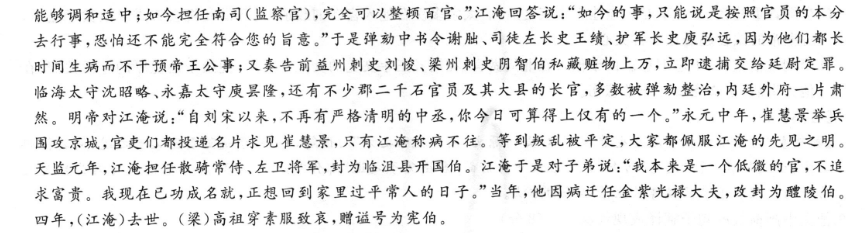 能够调和适中;如今担任南司(监察官),完全可以整顿百官。”江淹回答说:“如今的事,只能说是按照官员的本分
去行事,恐怕还不能完全符合您的旨意。”于是弹劾中书令谢朏、司徒左长史王缋、护军长史庾弘远,因为他们都长
时间生病而不干预帝王公事;又奏告前益州刺史刘悛、梁州刺史阴智伯私藏赃物上万,立即逮捕交给廷尉定罪。
临海太守沈昭略、永嘉太守庾昙隆,还有不少郡二千石官员及其大县的长官,多数被弹劾整治,内廷外府一片肃
然。明帝对江淹说:“自刘宋以来,不再有严格清明的中丞,你今日可算得上仅有的一个。”永元中年,崔慧景举兵
围攻京城,官吏们都投递名片求见崔慧景,只有江淹称病不往。等到叛乱被平定,大家都佩服江淹的先见之明。
天监元年,江淹担任散骑常侍、左卫将军,封为临沮县开国伯。江淹于是对子弟说:“我本来是一个低微的官,不追
求富贵。我现在已功成名就,正想回到家里过平常人的日子。”当年,他因病迁任金紫光禄大夫,改封为醴陵伯。
四年,(江淹)去世。(梁)高祖穿素服致哀,赠谥号为宪伯。